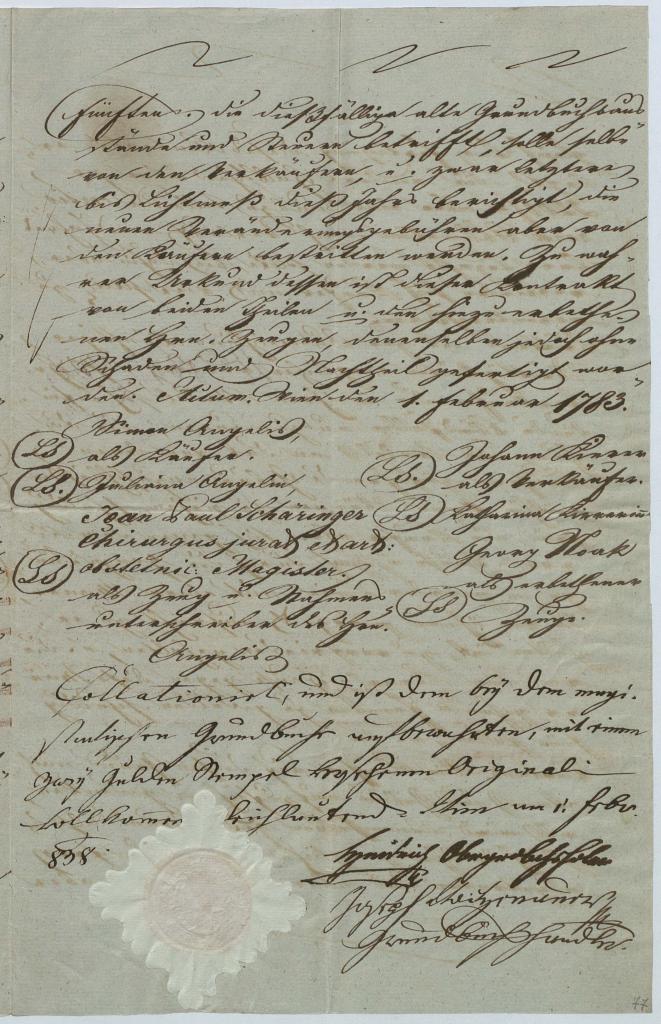 Fünftens. die dießfällige alte Grundbuchsaus
stände und Steuern betrifft, solle selbe
von den Verkäufern, u. zwar letztere
bis Lichtmeß dieß Jahrs berichtigt, die
neuen Veränderungsgebühren aber von
den Käufern bestritten werden. Zu wah-
rer Urkund dessen ist dieser Contrakt
von beiden Theilen u. den hiezu erbethe-
nen Hrn. Zeugen, denenselben jedoch ohne
Schaden und Nachtheil gefertigt wor
den. Actum. Wien den 1. Februar 1783.
Simon Angelis,
LS als Käufer.
LS. Juliana Angelin
Joan Paul Schäringer
Chirurgus jurat et art:
LS obstetric: Magister.
als Zeug u. Nahmens
unterschreiber des Hrn.
Angelis
Johann Kierer
LS. als Verkäufer.
LS Katharina Kiererin
Georg Noak
als erbethener
LS Zeuge.
Collationirt, und ist dem bey dem magi-
stratischen Grundbuche aufbewahrten, mit einem
zwey Gulden Stempel versehenen Originali
vollkommen gleichlautend. Wien am 1. Febr.
838.
Joseph
Grundbuchshandler.
77